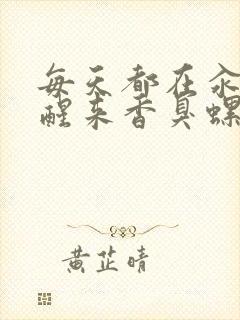 每天都在汆
醒来香臭螺
黄芷晴